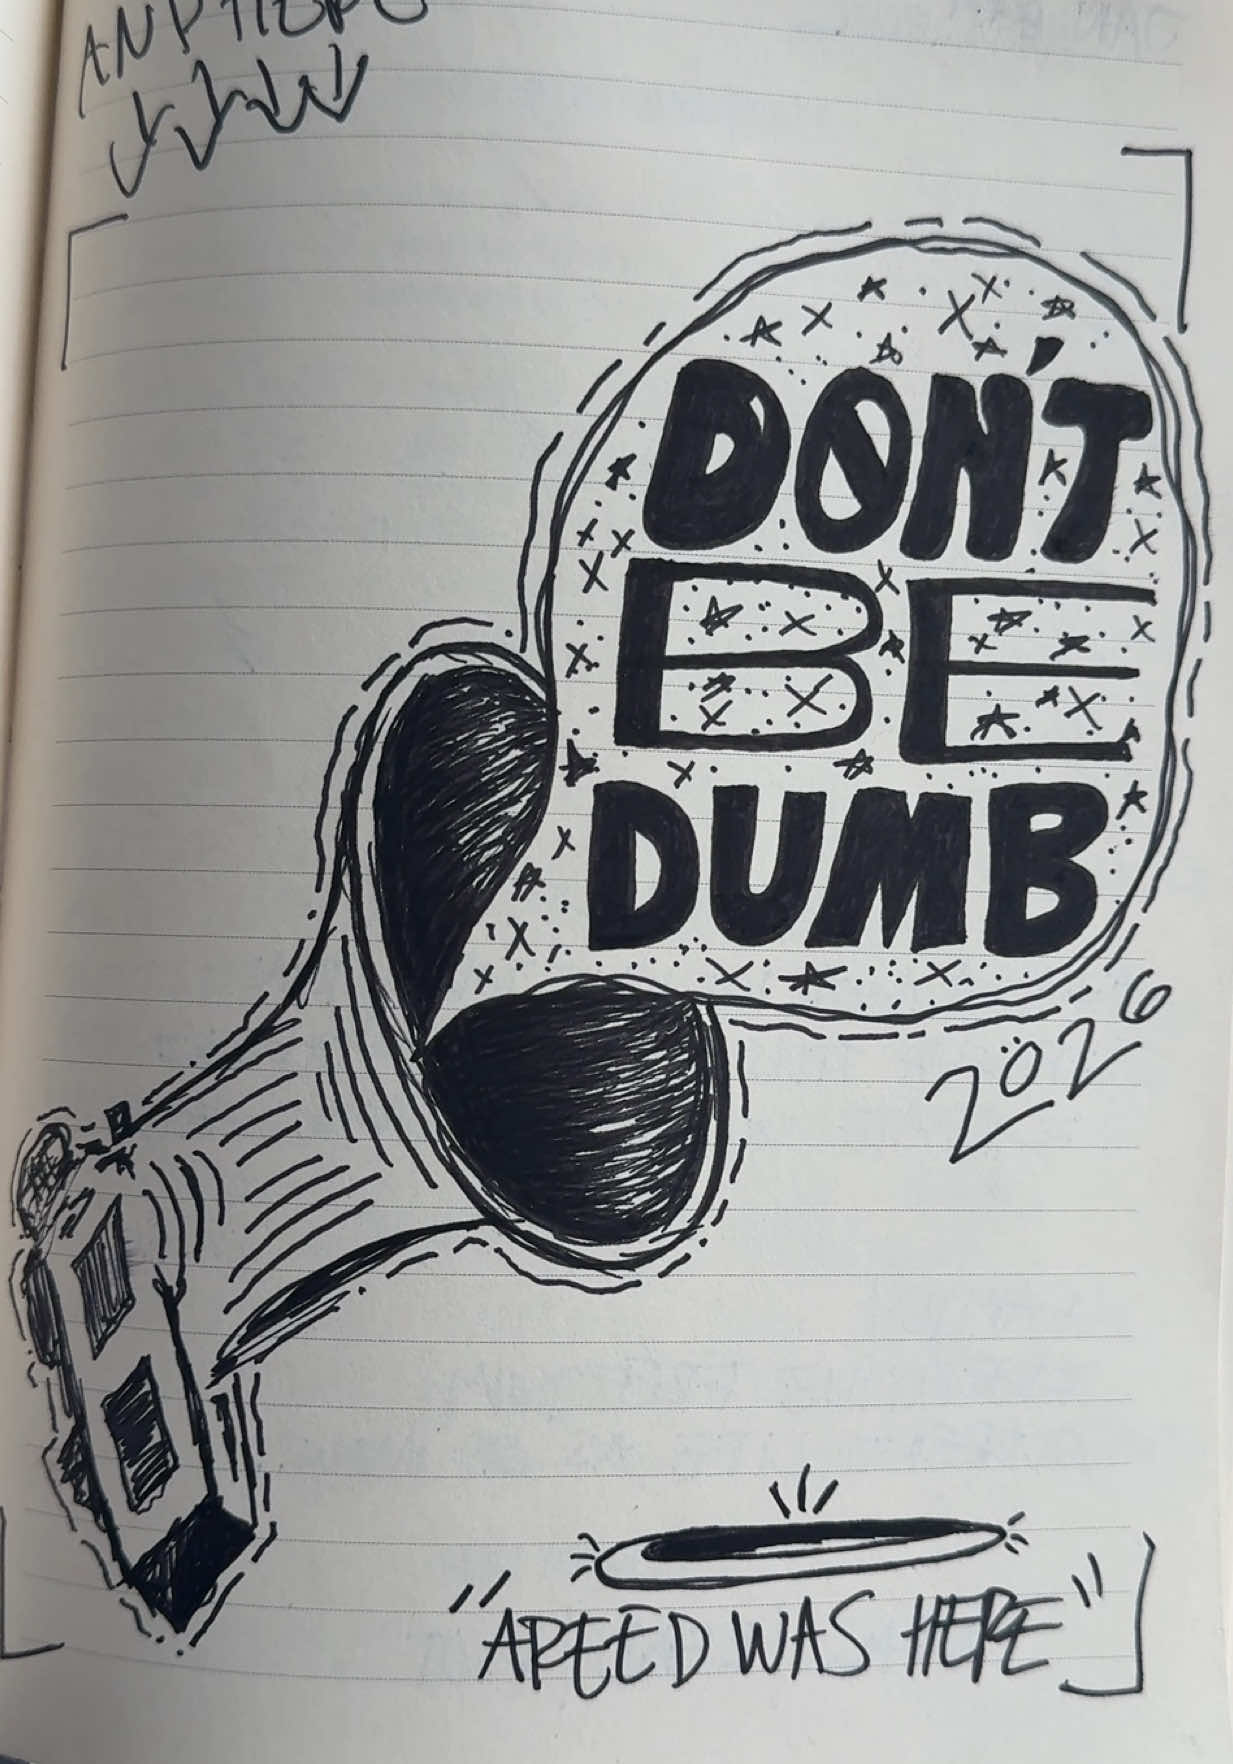 AND
DON'T
BE
DUMB
2026
"AREED WAS HERE"